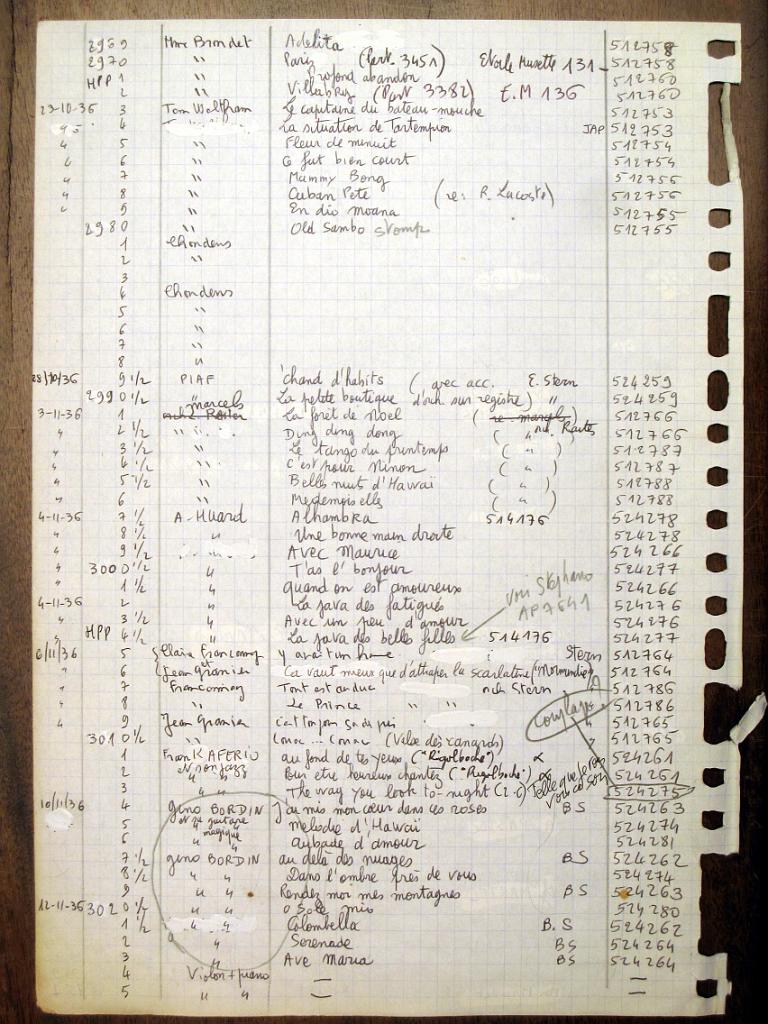 2969 Mme Brondet Adelita 512758
2970 " Paris (Part. 3451) Etoile Musette 131 - 512758
HPP 1 " Profond abandon 512760
2 " (Part 3382) E.M 136 512760
23-10-36 3 Tom Waltham Le capitaine du bateau-mouche 512753
4 La situation de Tartempion JAP 512753
" 5 " Fleur de minuit 512754
" 6 " Ce fut bien court 512754
" 7 " Mammy Bong 512756
" 8 " Cuban Pete (re: R. Lacoste) 512756
" 9 " En dio moana 512755
2980 " Old Sambo stomp 512755
1 Chondens
2 "
3
4 Chondens
5 "
6 "
7 "
8 "
28/10/36 9 1/2 PIAF 'chand d'habits (avec acc. E. Stern 524259
2990 1/2 " La petite boutique d'ach sur registre) " 524259
3-11-36 1 marcels La forêt de Noel (re: marcel) 512766
" 2 1/2 " Ding ding dong ( " ) orch. Raiter 512766
" 3 1/2 " Le tango du printemps ( " ) 512787
" 4 1/2 " C'est pour Ninon ( " ) 512787
" 5 1/2 " Belles nuits d'Hawaï ( " ) 512788
" 6 " Mesdemoiselles ( " ) 512788
4-11-36 7 1/2 A. Huard Alhambra 514176 524278
" 8 1/2 " Une bonne main droite 524278
" 9 1/2 Avec Maurice 524266
" 3000 1/2 " T'as l'bonjour 524277
" 1 1/2 " Quand on est amoureux 524266
voir Stéphane AP7641
4-11-36 2 " La java des fatigués 524276
" 3 1/2 " Avec un peu d'amour 524276
" HPP 4 1/2 " La java des belles filles 514176 524277
6/11/36 5 Claire Franconnay et y avait un Stern 512764
" 6 Jean Granier Ca vaut mieux que d'attraper la scarlatine ("Normandie") 512764
" 7 Franconnay Tout est au duc orch Stern 512786
" 8 " Le Prince " " 512786
" 9 Jean Granier c'est toujours ça de pris " 512765
3010 1/2 " Couac... Couac (Valse des canards) " 512765
Complainte
1 Frank AFERIO et son jazz au fond de tes yeux ("Rigolboche") 524261
2 " Pour être heureux chantez ("Rigolboche") 524261
3 " " The way you look to-night 524275
10/11/36 4 gino BORDIN J'ai mis mon cœur dans ces roses BS 524263
5 et sa guitare magique melodie d'Hawaï 524274
6 " " aubade d'amour 524281
7 1/2 gino BORDIN au delà des nuages BS 524262
8 1/2 " " Dans l'ombre près de vous 524274
9 " " Rendez moi mes montagnes BS 524263
12-11-36 3020 1/2 " " O sole mio 524280
1 1/2 " " Colombella B.S 524262
2 " Serenade BS 524264
3 " Ave Maria BS 524264
4 Violon + piano = =
5 " "